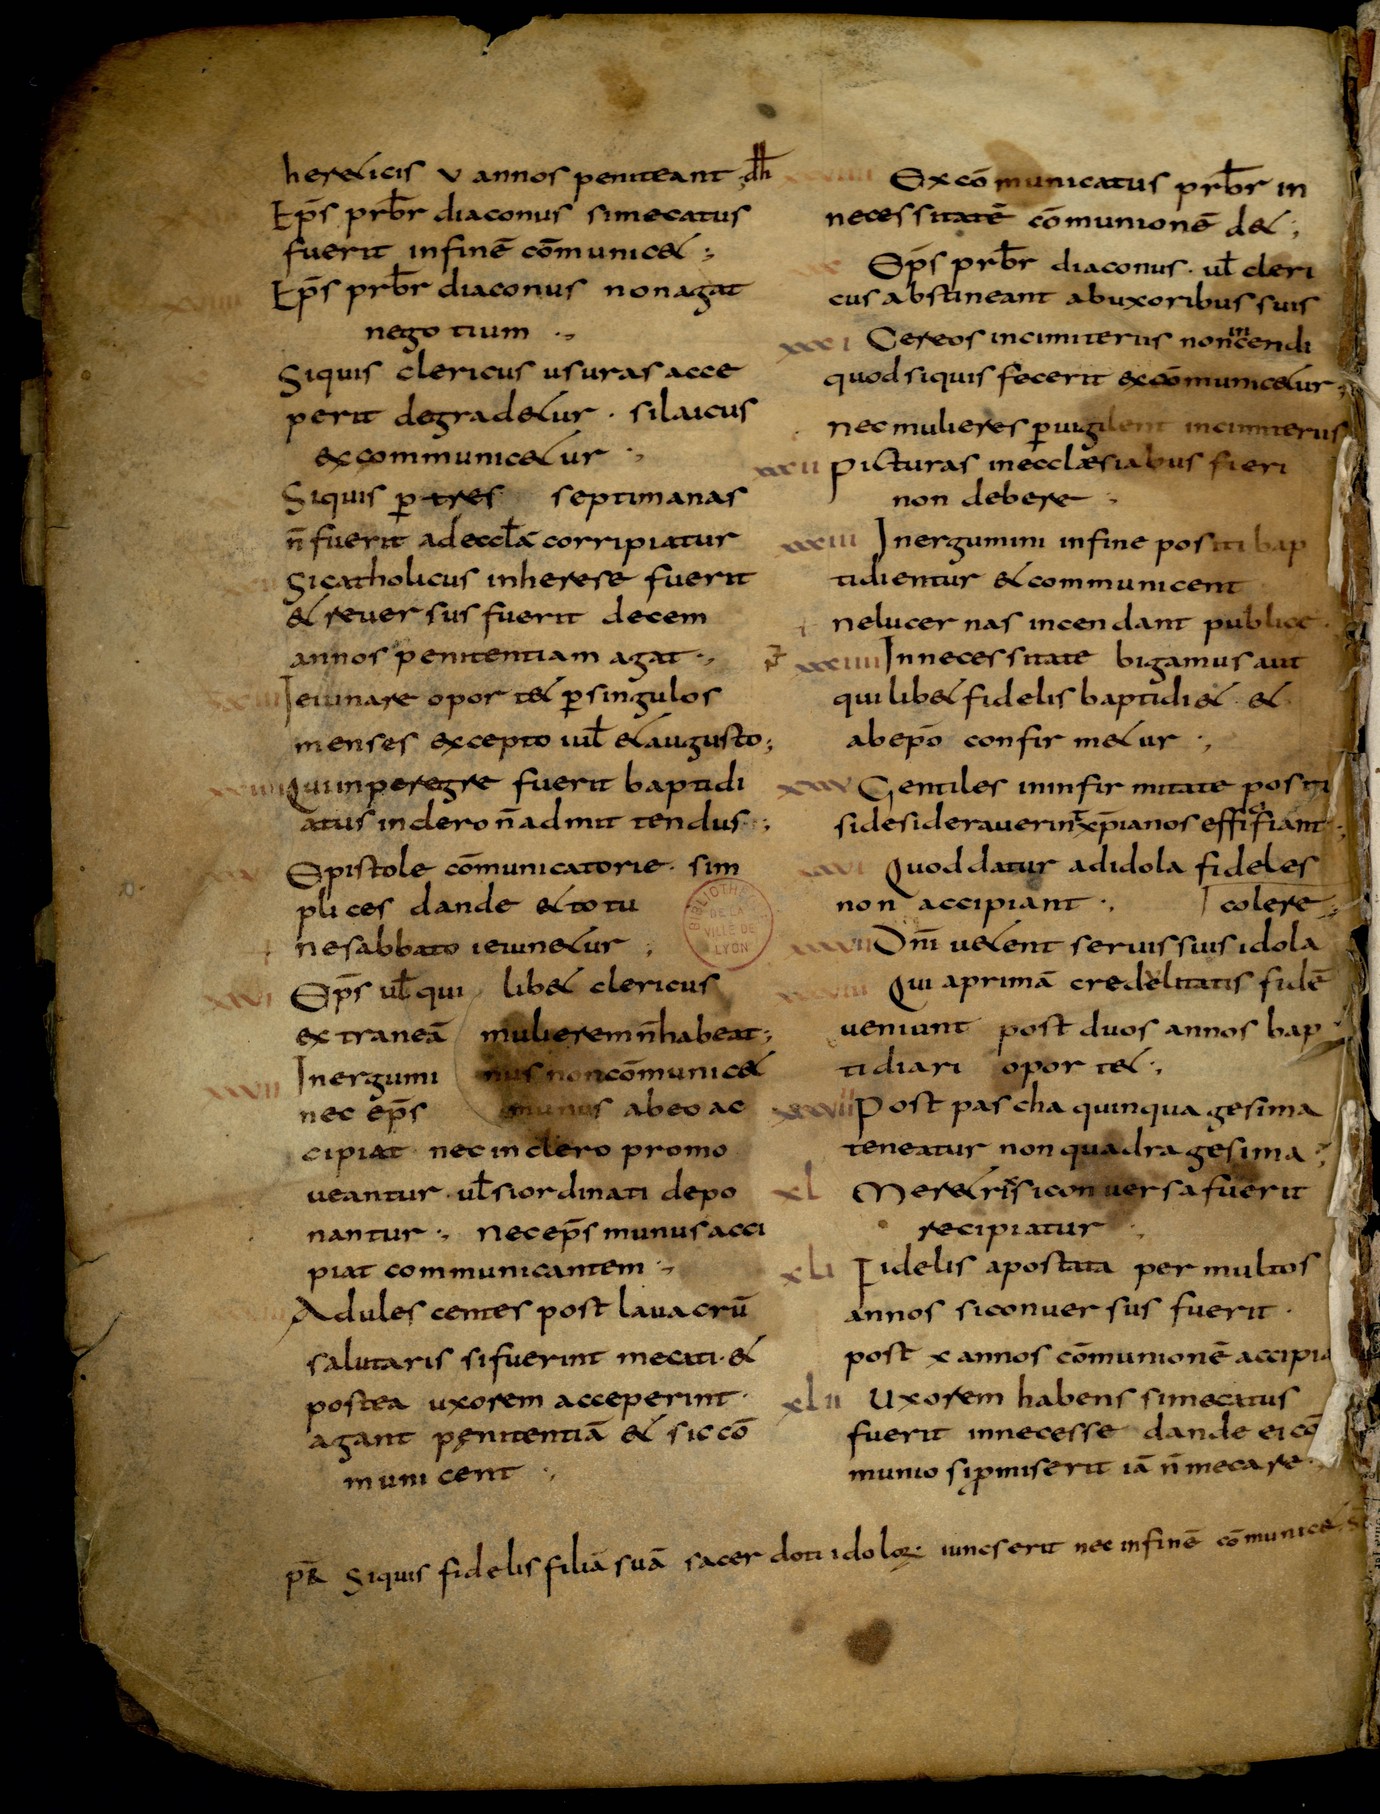 hereticis v annos peniteant dh
Ep̄s prb̄r diaconus simecatus
fuerit infinē cōmunicet ;
Ep̄s prb̄r diaconus nonagat
negotium .,
Siquis clericus usuras acce
perit degradetur . silaicus
excommunicetur .,
Siquis p̱ tres septimanas
n̄ fuerit adeccła corripiatur
Sicatholicus inherese fuerit
et reuersus fuerit decem
annos penitentiam agat .,
xxiii Ieiunare oportet p̱singulos
menses excepto iuł et augusto ;
xxiiii Quinperegre fuerit baptidi
atus inclero n̄ admittendus .;
xxv Epistole cōmunicatorie . sim
plices dande et totu
nesabbato ieiunetur ;
xxvi Ep̄s uł qui libet clericus
extraneā mulierem n̄ habeat ;
xxvii Inergumi nus noncōmunicet
nec ep̄s munus abeo ac
cipiat nec inclero promo
ueantur . uł siordinati depo
nantur ., nec ep̄s munus acci
piat communicantem .,
Adulescentes post lauacrū
salutaris sifuerint mecati . et
postea uxorem acceperint .
agant penitentiā et sic cō
municent .,
xxviiii Excōmunicatus prb̄r in
necessitatē cōmunionē det ;
xxx Ep̄s prb̄r diaconus . uł cleri
cus abstineant abuxoribus suis
xxxi Cereos incimiteriis non incendi
quod siquis fecerit excōmunicetur ;
nec mulieres p̱uigilent incimiteriis
xxxii Picturas inecclæsiabus fieri
non debere ;
xxxiii Inergumini infine positi bap
tidientur et communicent
nelucernas incendant publice .
xxxiiii Innecessitate bigamus aut
quilibet fidelis baptidiet et
abep̄o confirmetur .,
xxxv Gentiles ininfirmitate positi
sidesiderauerint xp̄ianos effici fiant ;
xxxvi Quod datur adidola fideles
non accipiant ., colere ;
xxxvii Dn̄i uetent seruis suis idola
xxxviii Qui aprimā credelitatis fidē
ueniunt post duos annos bap
tidiari oportet .,
xxxviiii Post pascha quinquagesima
teneatur non quadragesima ;
xl Meretrix siconuersa fuerit
recipiatur .,
xli Fidelis apostata per multos
annos siconuersus fuerit .
post x annos cōmunionē accipia
xlii Uxorem habens simecatus
fuerit innecesse dande ei cō
munio sip̱miserit iā n̄ mecare .
Siquis fidelis filiā suā sacerdoti idoloꝝ . iuncserit nec infinē cōmunicet .
BIBLIOTHE
DE LA
VILLE DE
LYON